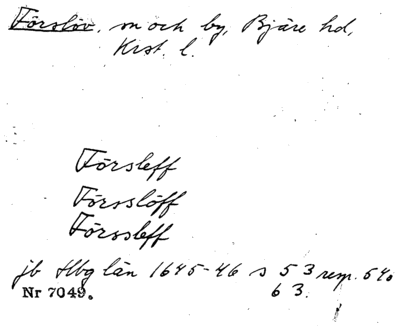 Förslöv, sn och by, Bjäre hd,
Krst. l.
Försleff
Förslöff
Förssleff
jb Hbg län 1645-46 s 53 resp. 540
63.
Nr 7049.